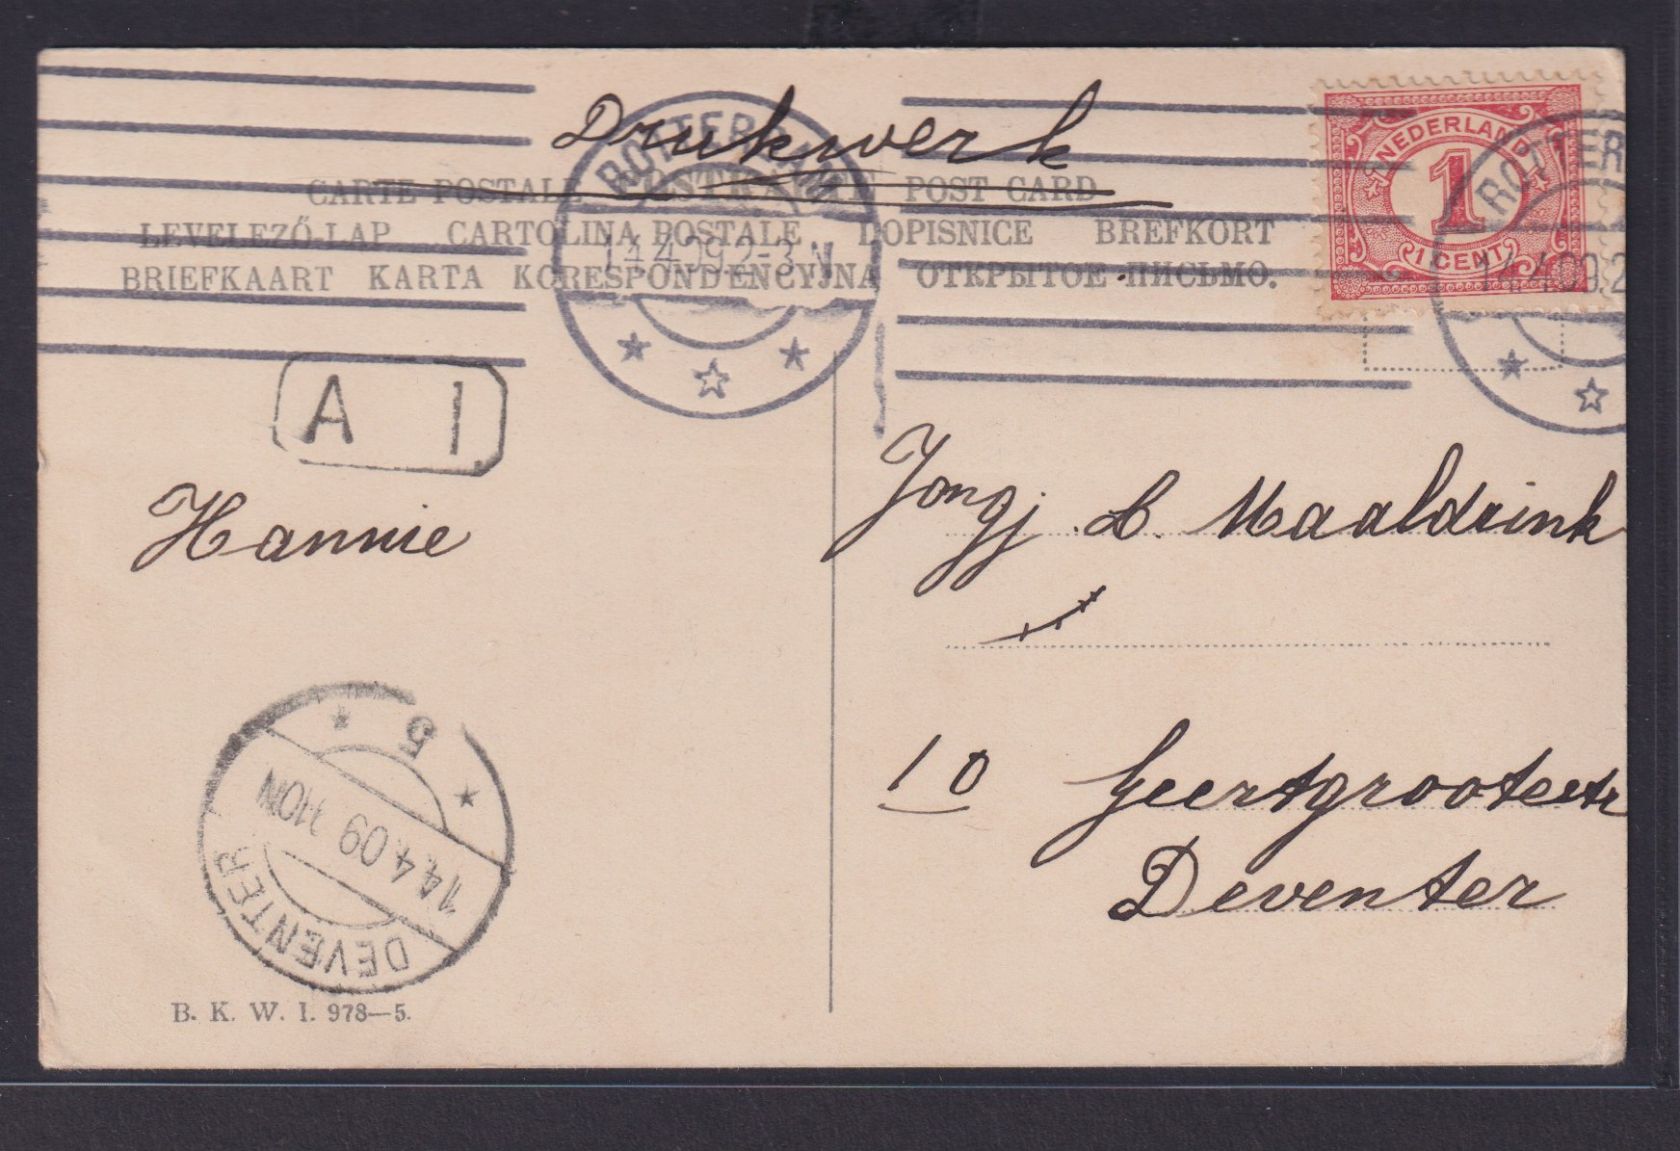 Drukwerk
CARTE POSTALE POSTKARTE POST CARD
LEVELEZŐ-LAP CARTOLINA POSTALE DOPISNICE BREFKORT
BRIEFKAART KARTA KORESPONDENCYJNA ОТКРЫТОЕ ПИСЬМО.
ROTTERDAM
14.4.09.2-3N
NEDERLAND
1
1 CENT
ROTTER
14.4.09.2
A 1
Hannie
Jongj. B. Maaldrink
10 Geertgrootestr
Deventer
5
14.4.09 7-10N
DEVENTER
B. K. W. I. 978—5.